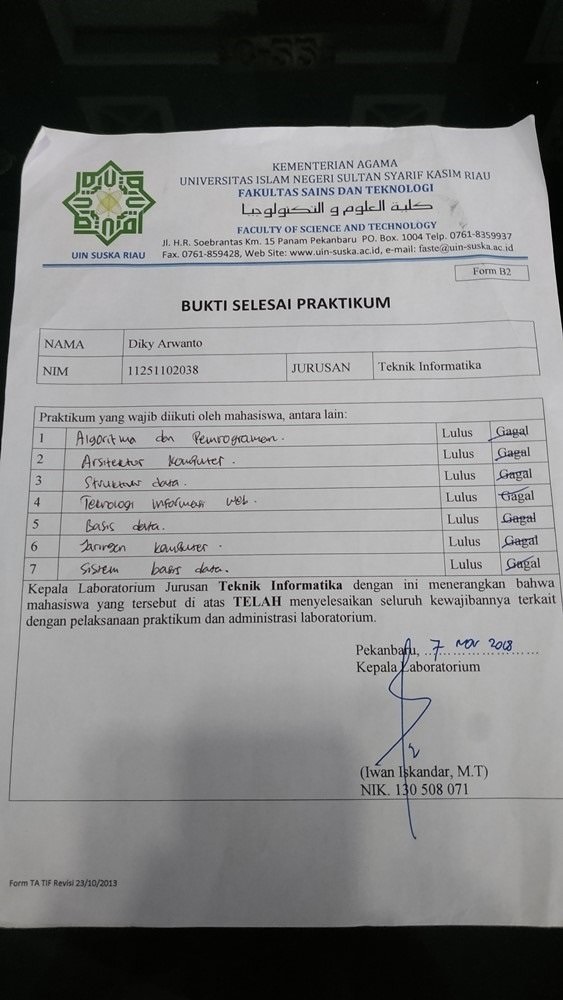 KEMENTERIAN AGAMA
UNIVERSITAS ISLAM NEGERI SULTAN SYARIF KASIM RIAU
FAKULTAS SAINS DAN TEKNOLOGI
كلية العلوم و التكنولوجيا
FACULTY OF SCIENCE AND TECHNOLOGY
UIN SUSKA RIAU
Jl. H.R. Soebrantas Km. 15 Panam Pekanbaru PO. Box. 1004 Telp. 0761-8359937
Fax. 0761-859428, Web Site: www.uin-suska.ac.id, e-mail: faste@uin-suska.ac.id
Form B2
BUKTI SELESAI PRAKTIKUM
NAMA Diky Arwanto
NIM 11251102038 JURUSAN Teknik Informatika
Praktikum yang wajib diikuti oleh mahasiswa, antara lain:
1 Algoritma dan Pemrograman. Lulus Gagal
2 Arsitektur Komputer. Lulus Gagal
3 Struktur data. Lulus Gagal
4 Teknologi informasi web. Lulus Gagal
5 Basis data. Lulus Gagal
6 Jaringan komputer. Lulus Gagal
7 Sistem basis data. Lulus Gagal
Kepala Laboratorium Jurusan Teknik Informatika dengan ini menerangkan bahwa
mahasiswa yang tersebut di atas TELAH menyelesaikan seluruh kewajibannya terkait
dengan pelaksanaan praktikum dan administrasi laboratorium.
Pekanbaru, 7 Nov 2018
Kepala Laboratorium
(Iwan Iskandar, M.T)
NIK. 130 508 071
Form TA TIF Revisi 23/10/2013